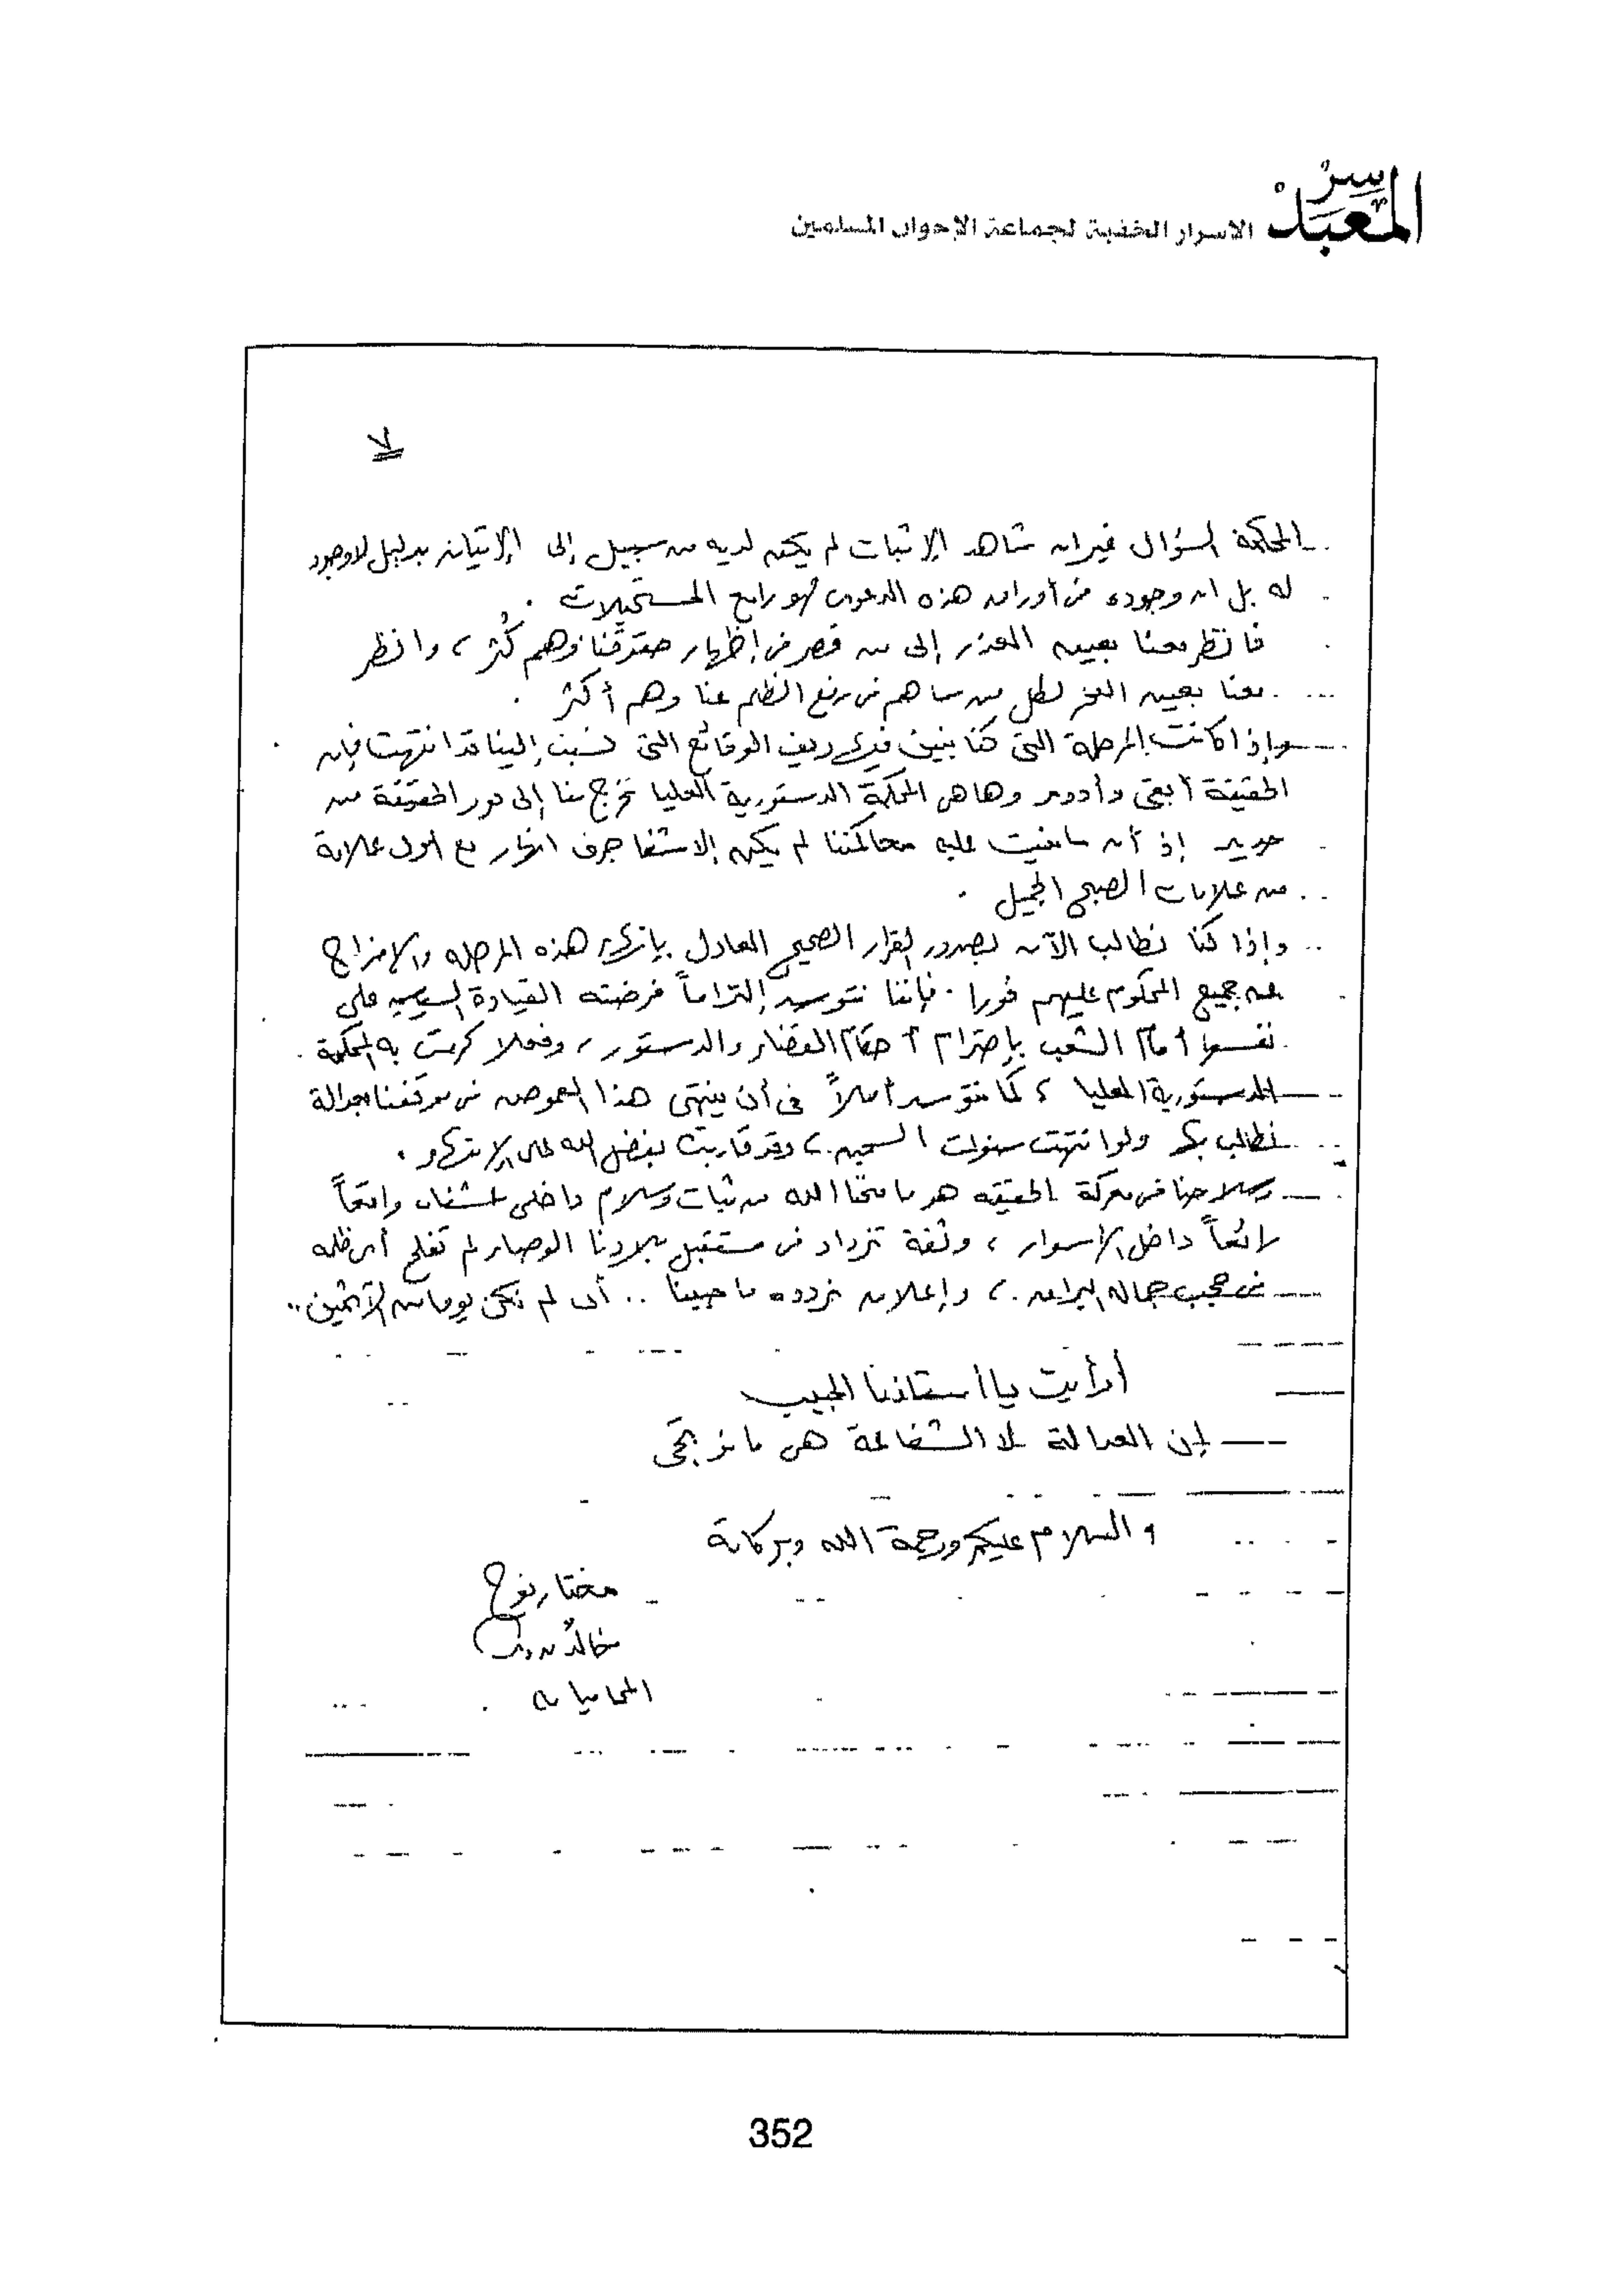 سر المعبد
الأسرار الخفية لجماعة الإخوان المسلمين
لا
المحكمة السؤال غير أن شاهد الإثبات لم يكن لديه من سبيل إلى الإتيان بدليل لا وجود
له بل أن وجوده في أوراق هذه الدعوى لهو رابع المستحيلات .
فانظر معنا بعين العذر إلى من قصر في إظهار حقوقنا وهم كُثر ، وانظر
معنا بعين الفخر لكل من ساهم في رفع الظلم عنا وهم أكثر .
وإذا كانت المرحلة التي كنا نبين فيها زيف الوقائع التي نسبت إلينا قد انتهت فإن
الحقيقة أبقى وأدوم وها هي المحكمة الدستورية العليا تخرج بنا إلى نور الحقيقة من
جديد إذ أن ما بنيت عليه محاكمتنا لم يكن إلا شفا جرف انهار مع أول علامة
من علامات الصبح الجميل .
وإذا كنا نطالب الآن بصدور القرار الصحيح العادل بإنهاء هذه المرحلة والإفراج
عن جميع المحكوم عليهم فورا . فإننا نتوسد إلتزاماً فرضته القيادة السياسية على
نفسها أمام الشعب بإحترام أحكام القضاء والدستور ، وفعلا كرمت به المحكمة
الدستورية العليا ، كما نتوسد أملاً في أن ينتهي هذا الغموض في موقفنا بعدالة
نطالب بها ولو انتهت سنوات السجن ، وقد قاربت بفضل الله على الإنتهاء .
وسلاحنا في معركة الحقيقة هو ما منحنا الله من ثبات وسلام داخلي واقعاً
رائعاً داخل الأسوار ، وثقة تزداد في مستقبل بلادنا الوضاء لم تفلح أي ظلمة
في حجب جماله ، وإعلان نردده ما حيينا .. أن لم نكن يوما من الآثمين ..
أرأيت يا أستاذنا الحبيب
إن العدالة لا الشفاعة هي ما نرتجى
والسلام عليكم ورحمة الله وبركاته
مختار نوح
خالد بدوي
المحاميان
352